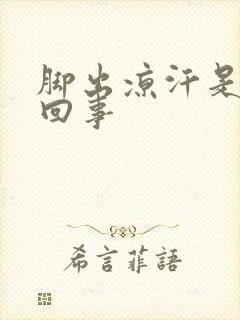 脚出凉汗是
回事
希言菲語